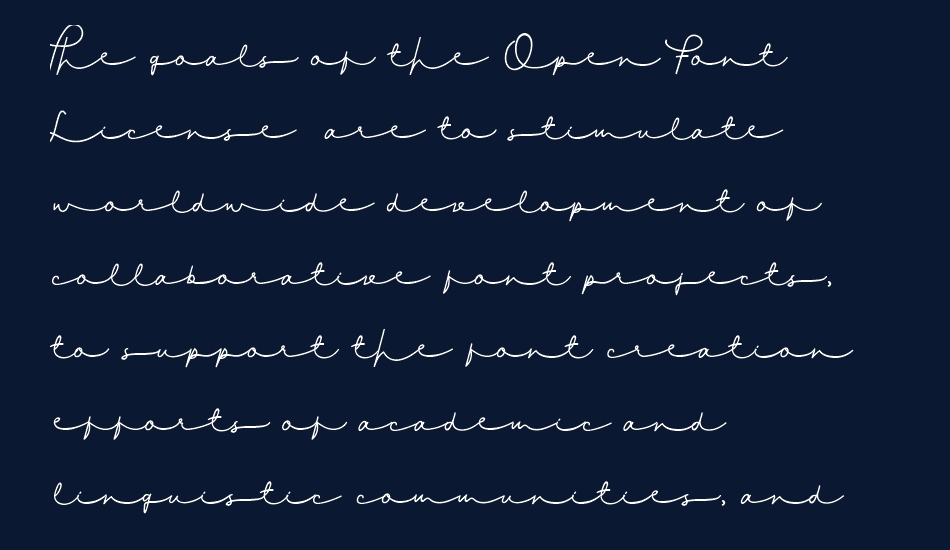 The goals of the Open Font
License are to stimulate
worldwide development of
collaborative font projects,
to support the font creation
efforts of academic and
linguistic communities, and